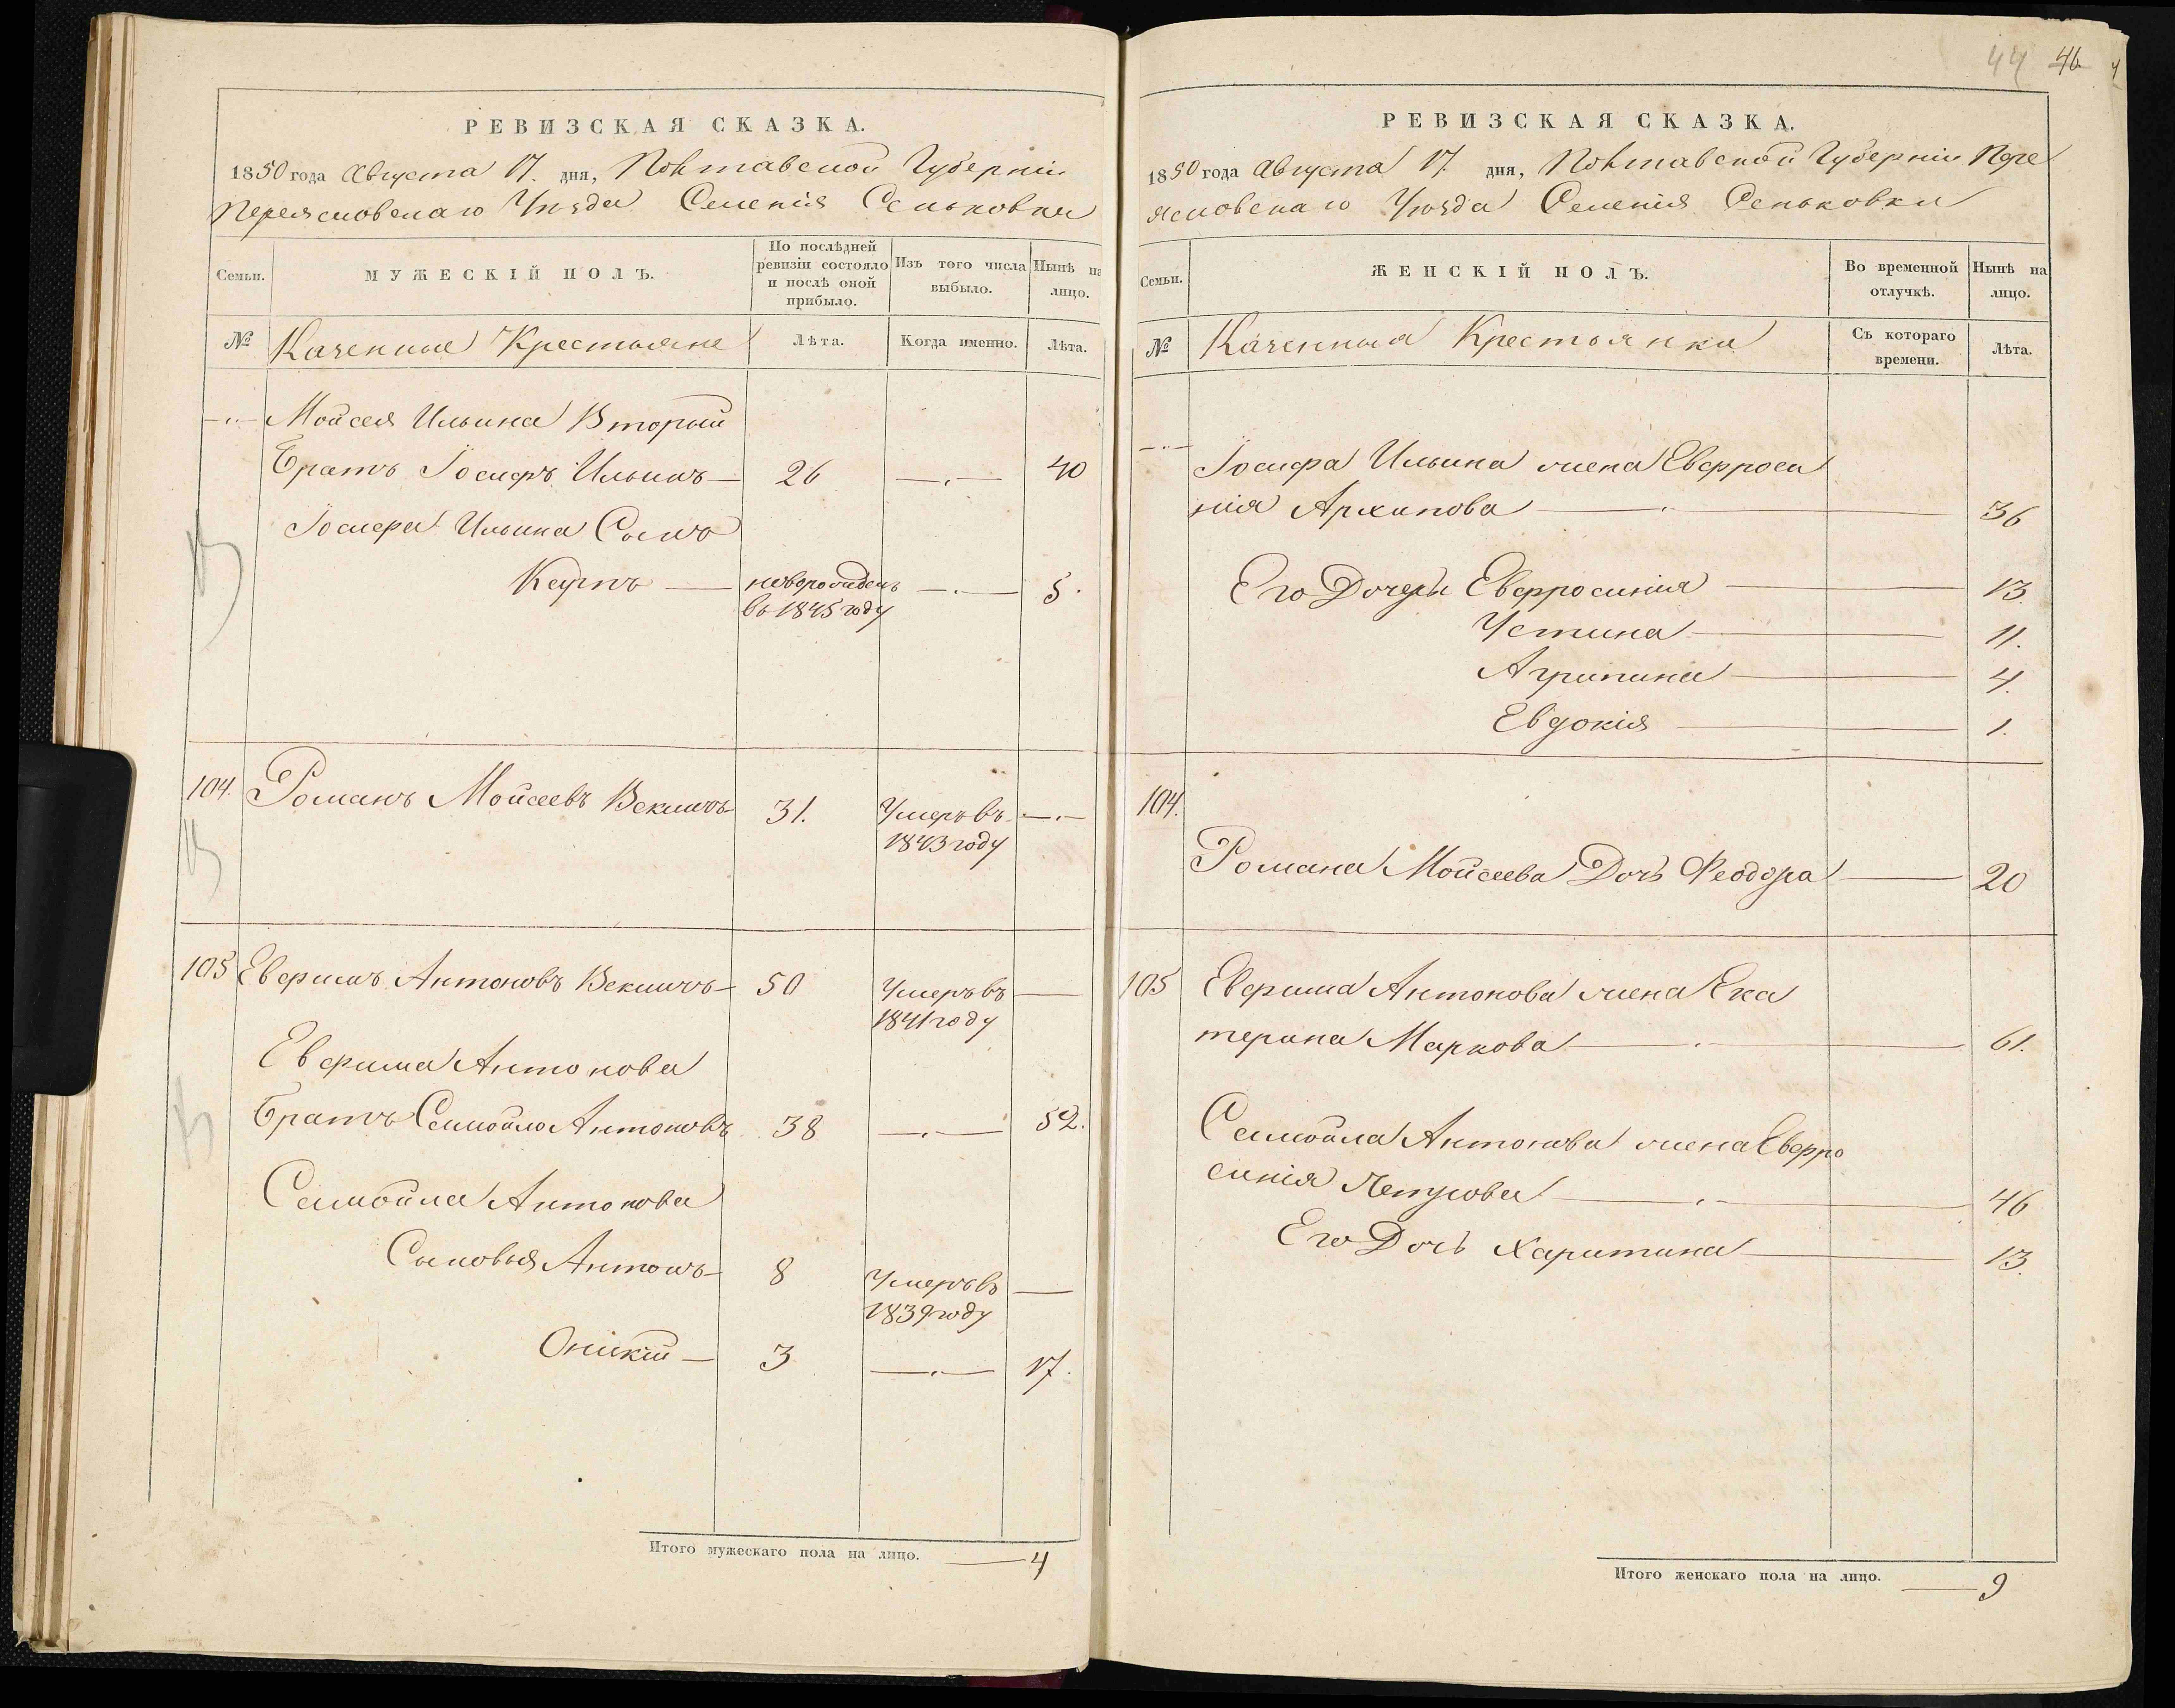 РЕВИЗСКАЯ СКАЗКА.
1850 года Августа 17. дня, Полтавской Губерніи
Переясловскаго Уѣзда Селенія Сеньковки
Семьи. МУЖЕСКІЙ ПОЛЪ. По послѣдней ревизіи состояло и послѣ оной прибыло. Изъ того числа выбыло. Нынѣ на лицо.
№ Казенные Крестьяне Лѣта. Когда именно. Лѣта.
Мойсея Ильина Вторый
Братъ Іосифъ Ильинъ 26 40
Іосифа Ильина Сынъ
Карпъ новорожденъ 5.
въ 1845 году
104. Романъ Мойсеевъ Векличъ 31. Умеръ въ
1843 году
105 Евфимъ Антоновъ Векличъ 50 Умеръ въ
1841 году
Евфима Антонова
Братъ Самойло Антоновъ 38 52.
Самойла Антонова
Сыновья Антонъ 8 Умеръ въ
1839 году
Оникій 3 17.
Итого мужескаго пола на лицо. 4
44 46
РЕВИЗСКАЯ СКАЗКА.
1850 года Августа 17. дня, Полтавской Губерніи Пере
ясловскаго Уѣзда Селенія Сеньковки
Семьи. ЖЕНСКІЙ ПОЛЪ. Во временной отлучкѣ. Нынѣ на лицо.
№ Казенныя Крестьянки Съ котораго времени. Лѣта.
Іосифа Ильина жена Евфроси
нія Архипова 36
Его Дочери Евфросинія 13.
Устина 11.
Агрипина 4.
Евдокія 1.
104.
Романа Мойсеева Дочь Феодора 20
105 Евфима Антонова жена Ека
терина Маркова 61.
Самойла Антонова жена Евфро
синія Петрова 46
Его Дочь Харитина 13.
Итого женскаго пола на лицо. 9